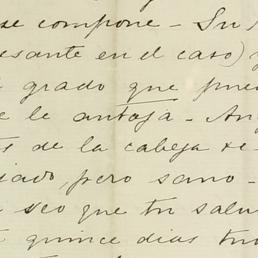 se compone - Su
esante en el caso) y
grado que pue
e le antoja - An
s de la cabeza se
iado, pero sano -
seo que tu salu
quince dias tu